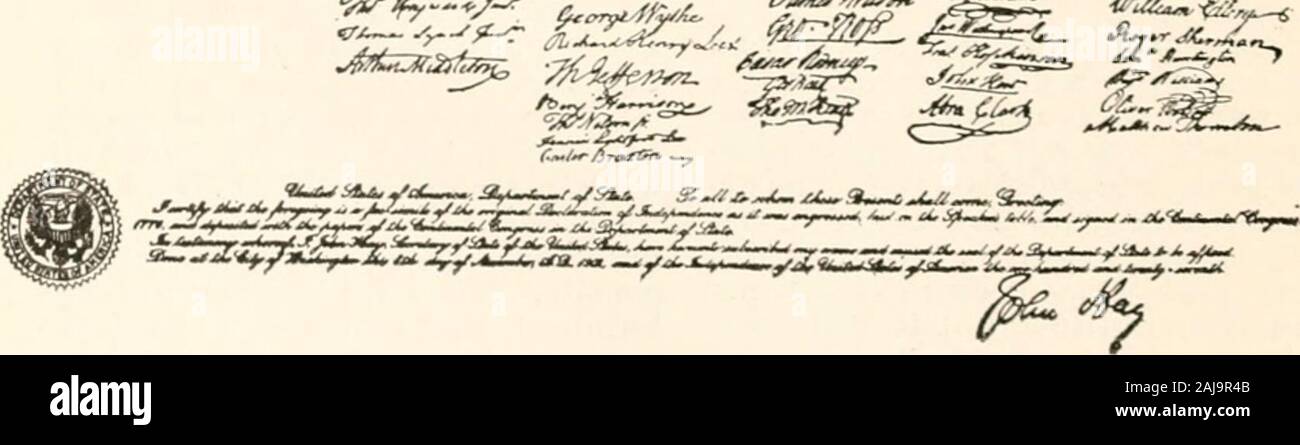 Thos Heyward Junr.
Thomas Lynch Junr
Arthur Middleton
George Wythe
Richard Henry Lee
Th Jefferson
Benj Harrison
Thos Nelson jr
Francis Lightfoot Lee
Carter Braxton
James Wilson
Geo. Ross
Caesar Rodney
Geo Read
Tho M:Kean
Jno Witherspoon
Fras. Hopkinson
John Hart
Abra Clark
William Ellery
Roger Sherman
Huntington
Wm Williams
Oliver Wolcott
Matthew Thornton
United States of America, Department of State. To all to whom these Presents shall come, Greeting:
I certify that the foregoing is a fac-simile of the original Declaration of Independence as it was engrossed, laid on the Speakers table, and signed in the Continental Congress
1776, and deposited with the papers of the Continental Congress in the Department of State.
In testimony whereof I, John Hay, Secretary of State of the United States, have hereunto subscribed my name and caused the seal of the Department of State to be affixed.
Done at the City of Washington this day of November, A.D. and of the Independence of the United States of America the one hundred and twenty-seventh
John Hay
DEPARTMENT OF STATE
UNITED STATES OF AMERICA
alamy
Image ID: 2AJ9R4B
www.alamy.com